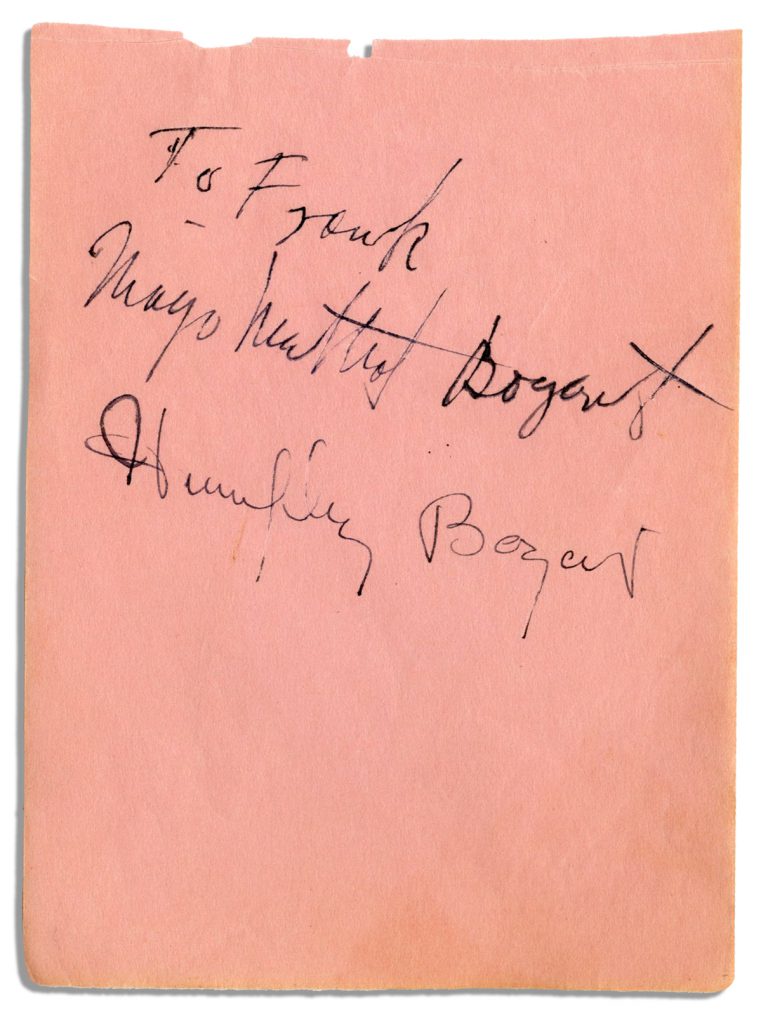 To Frank
Mayo Methot Bogart
Humphrey Bogart